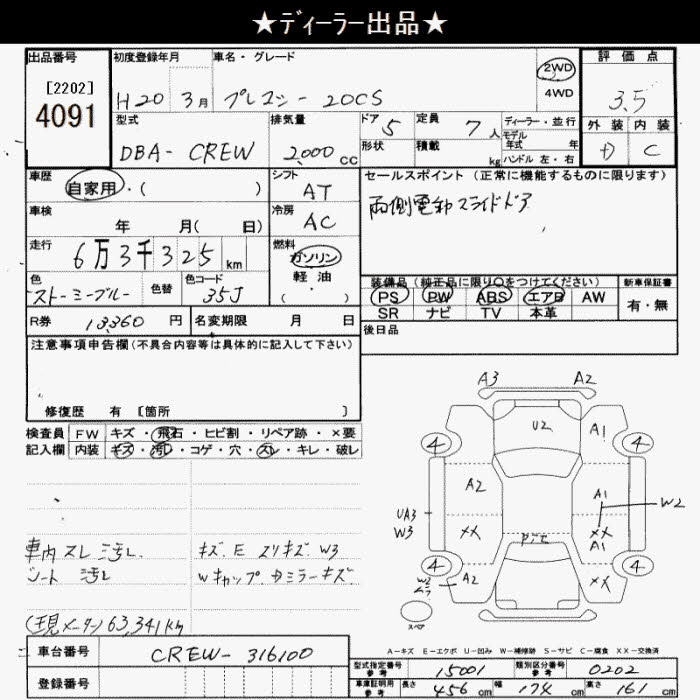 ★ディーラー出品★
出品番号 初度登録年月 車名・グレード 2WD 評価点
[2202] 4WD
4091 H20 3月 プレマシー 20CS 3.5
型式 排気量 ドア 5 定員 7人 ディーラー・並行 外装 内装
モデル年式 年
形状 積載 kg ハンドル 左・右
DBA-CREW 2,000cc C
車歴 自家用・( ) シフト AT セールスポイント(正常に機能するものに限ります)
車検 年 月( 日) 冷房 AC 両側電動スライドドア
走行 6万3千325km 燃料 ガソリン
軽・油
( ・ )
色 ストーミーブルー 色替 色コード 35J 装備品(純正品に限り○をつけてください) 新車保証書
PS PW ABS エアB AW 有・無
SR ナビ TV 本革
R券 13,360円 名変期限 月 日 後日品
注意事項申告欄(不具合内容等は具体的に記入して下さい)
修復歴 有 [箇所 ]
検査員 FW キズ・飛石・ヒビ割・リペア跡・×要
記入欄 内装 キズ・汚レ・コゲ・穴・スレ・キレ・破レ
A3 A2
U2
A1
4 4
A2
A1
W2
UA3
W3
XX
XX
A1
4 4
W2
A2
XX
スペア
車内 スレ 汚レ キズ.E スリキズ W3
シート 汚レ Wキャップ 力ミラーキズ
(現メーター)63,341km
A-キズ E-エクボ U-凹み W-補修跡 S-サビ C-腐食 XX-交換済
車台番号 CREW-316100
登録番号
型式指定番号 参考 15001 類別区分番号 参考 0202
車庫証明用 参考 長さ 456cm 幅 174cm 高さ 161cm